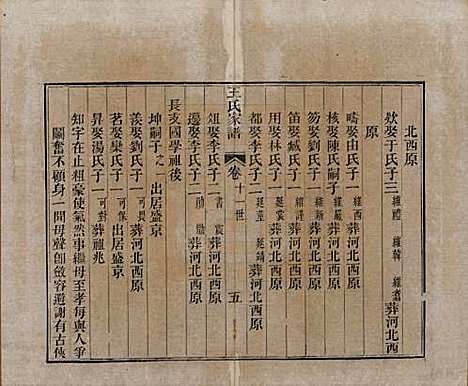 北西原
欵娶于氏子三 維禮 維翰 維壽 葬河北西
原
疇娶由氏子一 維酉 葬河北西原
核娶陳氏嗣子 維嚴 葬河北西原
笏娶劉氏子一 維新 葬河北西原
笛娶臧氏子一 維謹 葬河北西原
用娶林氏子一 延棠 葬河北西原
都娶李氏子二 延堇 延靖 葬河北西原
王氏家譜 卷十一世 五
俎娶李氏子二 書 震 葬河北西原
邊娶李氏子二 勛 勷 葬河北西原
長支國學祖後
坤嗣子之一 出居盛京
羨娶劉氏子一 可畏 葬河北西原
茗娶欒氏子一 可保 出居盛京
昇娶湯氏子一 可對 葬祖兆
知字在止粗豪使氣然事繼母至孝每與人爭
鬬奮不顧身一聞母聲卽斂容避謝有古俠